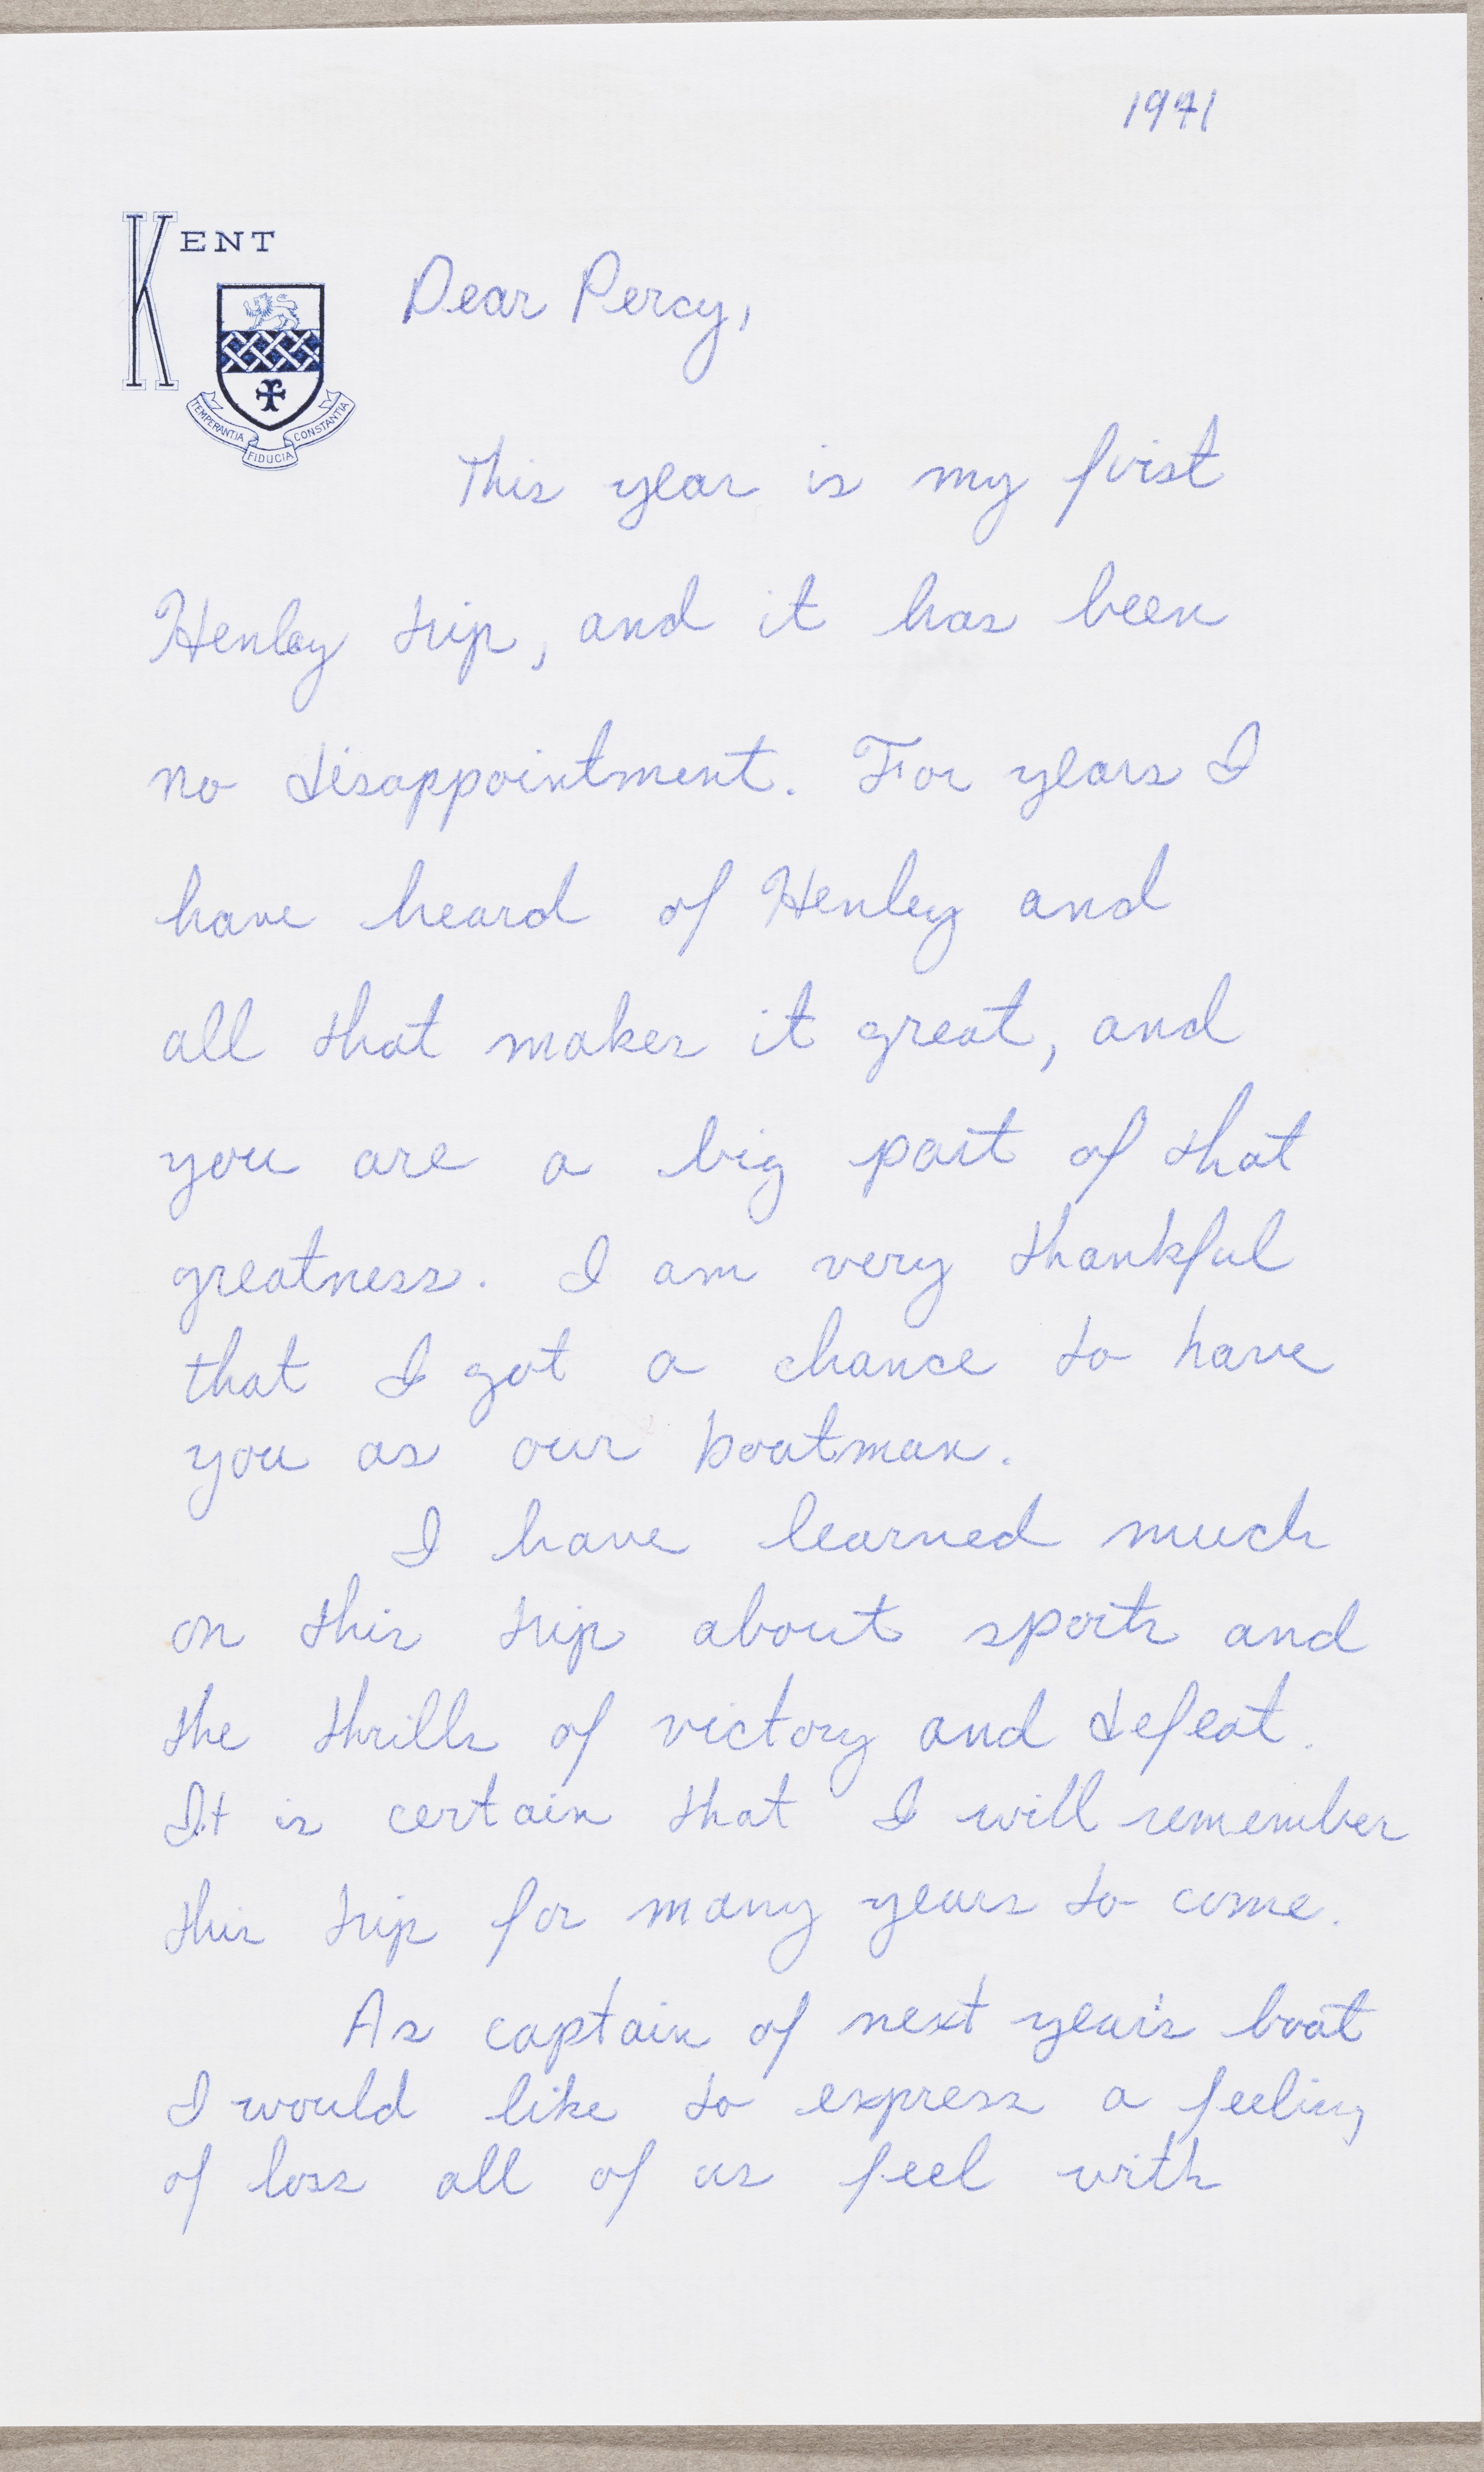 1971
KENT
TEMPERANTIA FIDUCIA CONSTANTIA
Dear Percy,
This year is my first
Henley trip, and it has been
no disappointment. For years I
have heard of Henley and
all that makes it great, and
you are a big part of that
greatness. I am very thankful
that I got a chance to have
you as our boatman.
I have learned much
on this trip about sports and
the thrills of victory and defeat.
It is certain that I will remember
this trip for many years to come.
As captain of next year's boat
I would like to express a feeling
of loss all of us feel with